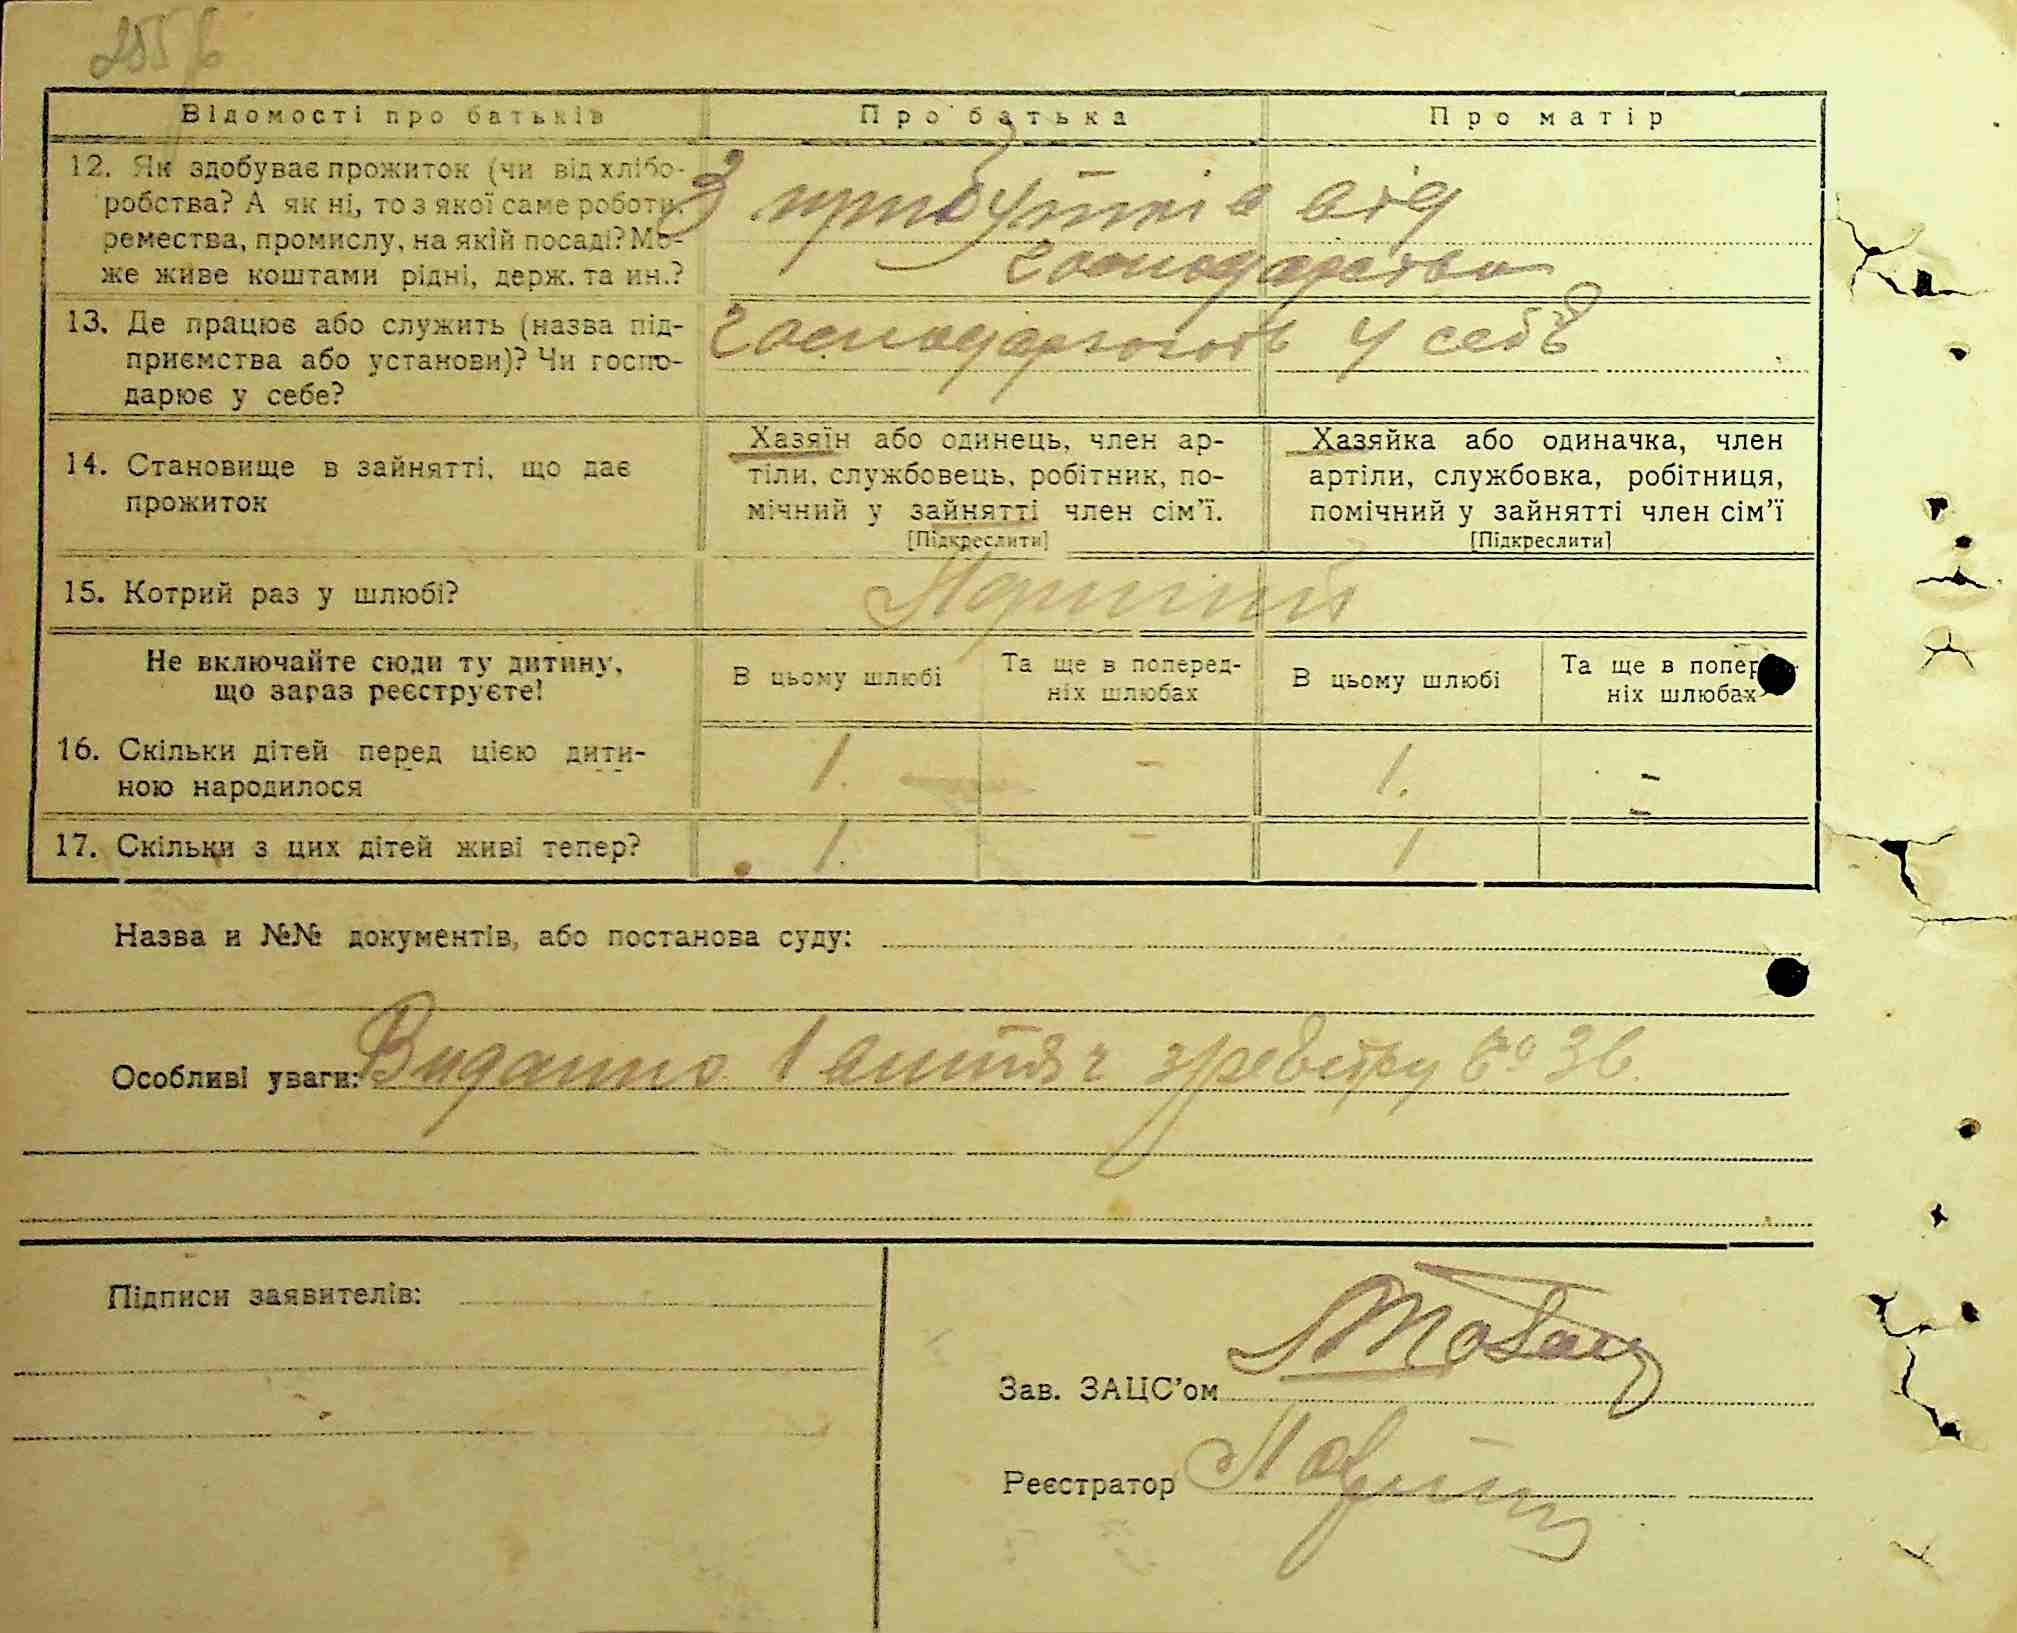 Відомості про батьків Про батька Про матір
12. Як здобуває прожиток (чи від хлібо-
робства? А як ні, то з якої саме роботи,
ремества, промислу, на якій посаді? Мо-
же живе коштами рідні, держ. та ин.?
З прибутків від
господарства
13. Де працює або служить (назва під-
приємства або установи)? Чи госпо-
дарює у себе?
господарюють у себе
14. Становище в зайнятті, що дає
прожиток
Хазяїн або одинець, член ар-
тіли, службовець, робітник, по-
мічний у зайнятті член сім’ї.
[Підкреслити]
Хазяйка або одиначка, член
артіли, службовка, робітниця,
помічний у зайнятті член сім’ї
[Підкреслити]
15. Котрий раз у шлюбі?
Не включайте сюди ту дитину,
що зараз реєструєте!
В цьому шлюбі
Та ще в поперед-
ніх шлюбах
В цьому шлюбі
Та ще в попер
ніх шлюбах
16. Скільки дітей перед цією дити-
ною народилося
1. - 1. -
17. Скільки з цих дітей живі тепер?
1. - 1 -
Назва и №№ документів, або постанова суду:
Особливі уваги: Виданно 1 з реєстру № 36.
Підписи заявителів:
Зав. ЗАЦС’ом
Реєстратор